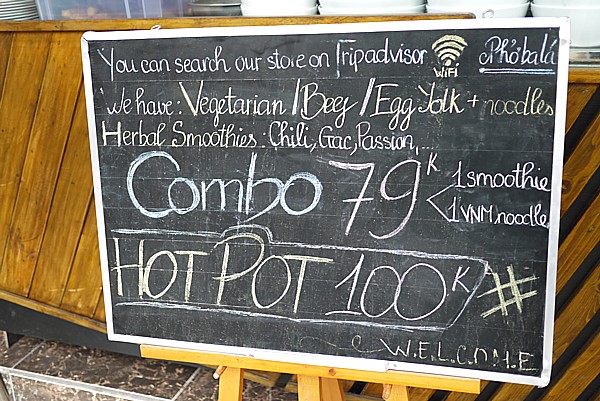 You can search our store on Tripadvisor WiFi Phở bálá
We have: Vegetarian / Beef / Egg Yolk + noodles
Herbal Smoothies: Chili, Gac, Passion,...
Combo 79K 1 smoothie
1 VNM noodle
HOT POT 100K #
W.E.L.C.O.M.E